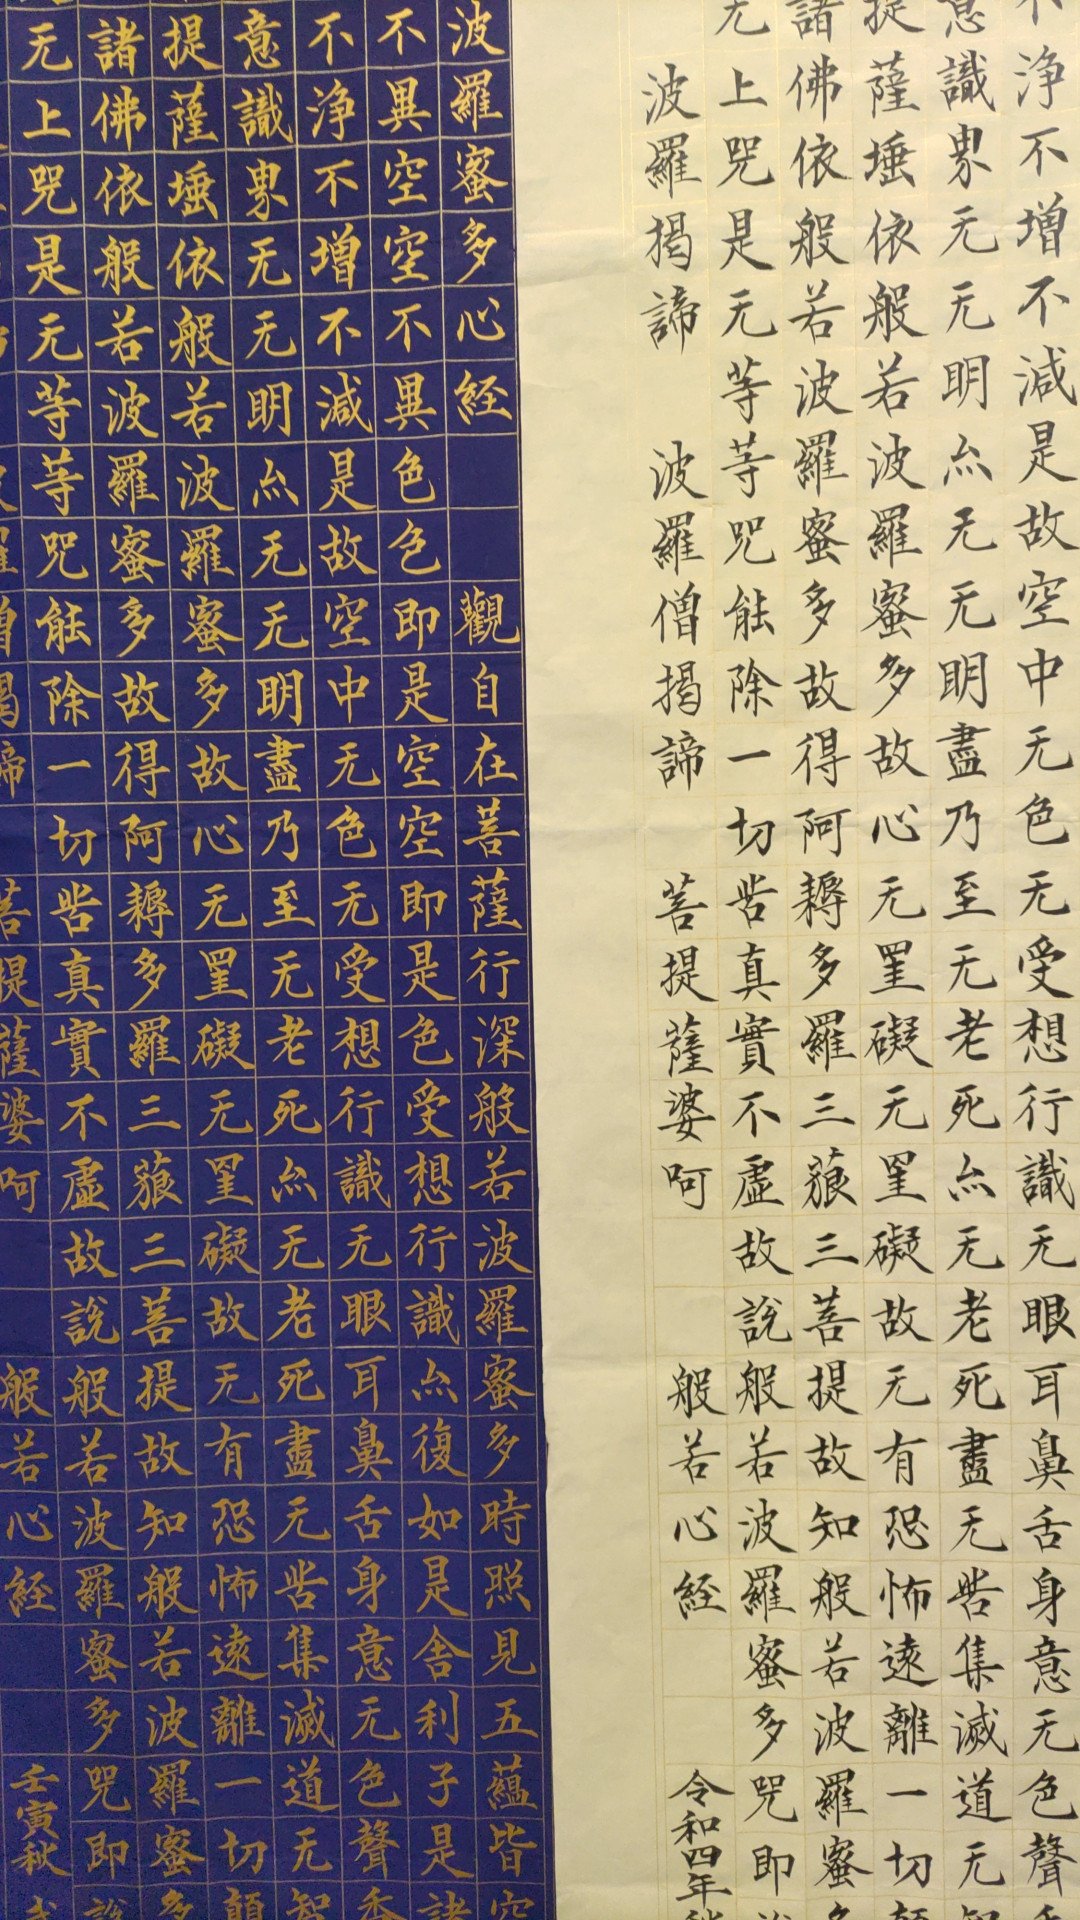 不浄不増不減是故空中无色无受想行識无眼耳鼻舌身意无色聲香
意識界无无明亦无无明盡乃至无老死亦无老死盡无苦集滅道无智
提薩埵依般若波羅蜜多故心无罣礙无罣礙故无有恐怖遠離一切顛
諸佛依般若波羅蜜多故得阿耨多羅三藐三菩提故知般若波羅蜜多
无上咒是无等等咒能除一切苦真實不虛故說般若波羅蜜多咒即說
波羅揭諦 波羅僧揭諦 菩提薩婆呵 般若心経 令和四年秋
波羅蜜多心経 觀自在菩薩行深般若波羅蜜多時照見五蘊皆空
不異空空不異色色即是空空即是色受想行識亦復如是舍利子是諸
不浄不増不減是故空中无色无受想行識无眼耳鼻舌身意无色聲香
意識界无无明亦无无明盡乃至无老死亦无老死盡无苦集滅道无智
提薩埵依般若波羅蜜多故心无罣礙无罣礙故无有恐怖遠離一切顛
諸佛依般若波羅蜜多故得阿耨多羅三藐三菩提故知般若波羅蜜多
无上咒是无等等咒能除一切苦真實不虛故說般若波羅蜜多咒即說
羅僧揭諦 菩提薩婆呵 般若心経 壬寅秋